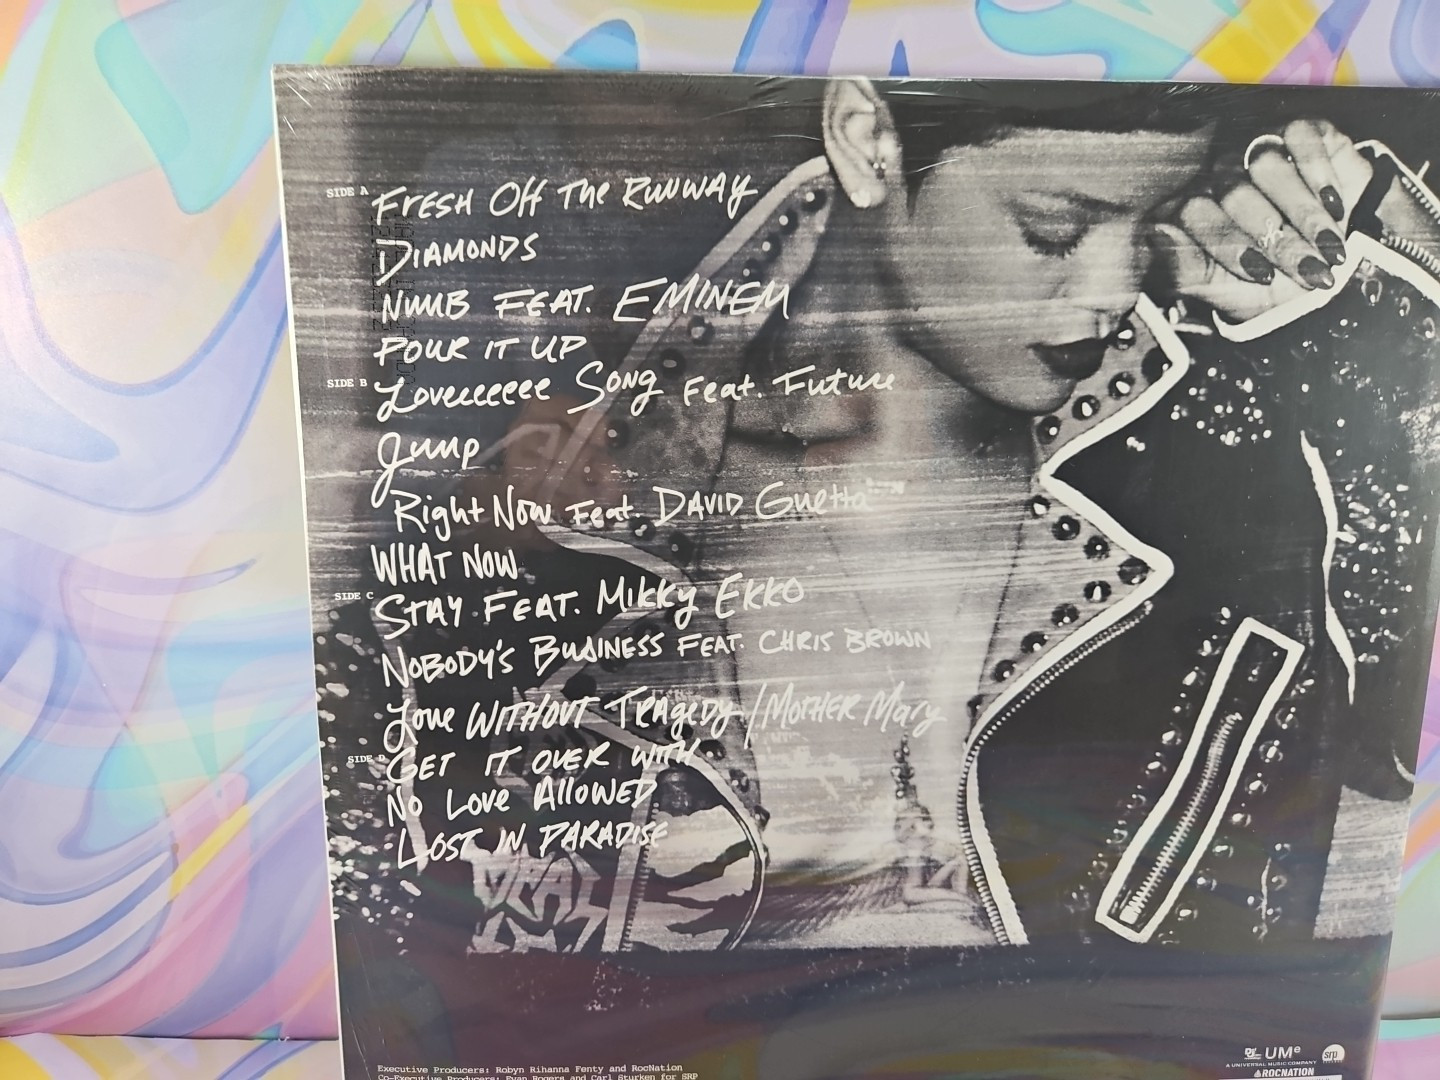 SIDE A
FRESH OFF THE RUNWAY
DIAMONDS
NUMB FEAT. EMINEM
POUR IT UP
SIDE B
Loveeeeeee Song Feat. Future
Jump
Right Now Feat. DAVID Guetta
WHAT NOW
SIDE C
STAY FEAT. MIKKY EKKO
NOBODY'S BUSINESS FEAT. CHRIS BROWN
Love WITHOUT TRAGEDY / MOTHER MARY
SIDE D
GET IT OVER WITH
NO LOVE ALLOWED
LOST IN PARADISE
Executive Producers: Robyn Rihanna Fenty and RocNation
Co-Executive Producers: Evan Rogers and Carl Sturken for SRP
UMe
A UNIVERSAL MUSIC COMPANY
srp
ROCNATION